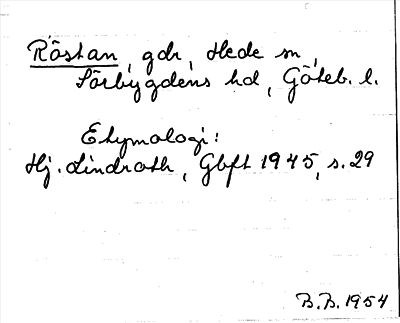 Röstan, gdr, Hede sn,
Sörbygdens hd, Göteb. l.
Etymologi:
Hj. Lindroth, Gbft 1945, s. 29
B.B. 1954